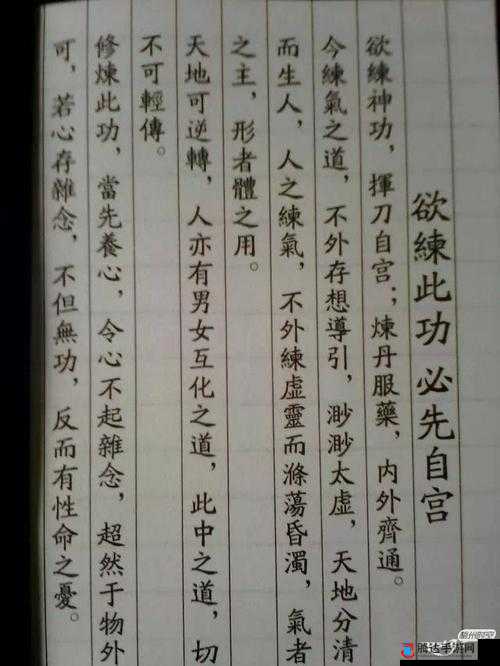 欲練此功 必先自宫
欲練神功，揮刀自宫；煉丹服藥，内外齊通。
今練氣之道，不外存想導引，渺渺太虛，天地分清
而生人，人之練氣，不外練虛靈而滌蕩昏濁，氣者
之主，形者體之用。
天地可逆轉，人亦有男女互化之道，此中之道，切
不可輕傳。
修煉此功，當先養心，令心不起雜念，超然于物外
可，若心存雜念，不但無功，反而有性命之憂。
腾达手游网